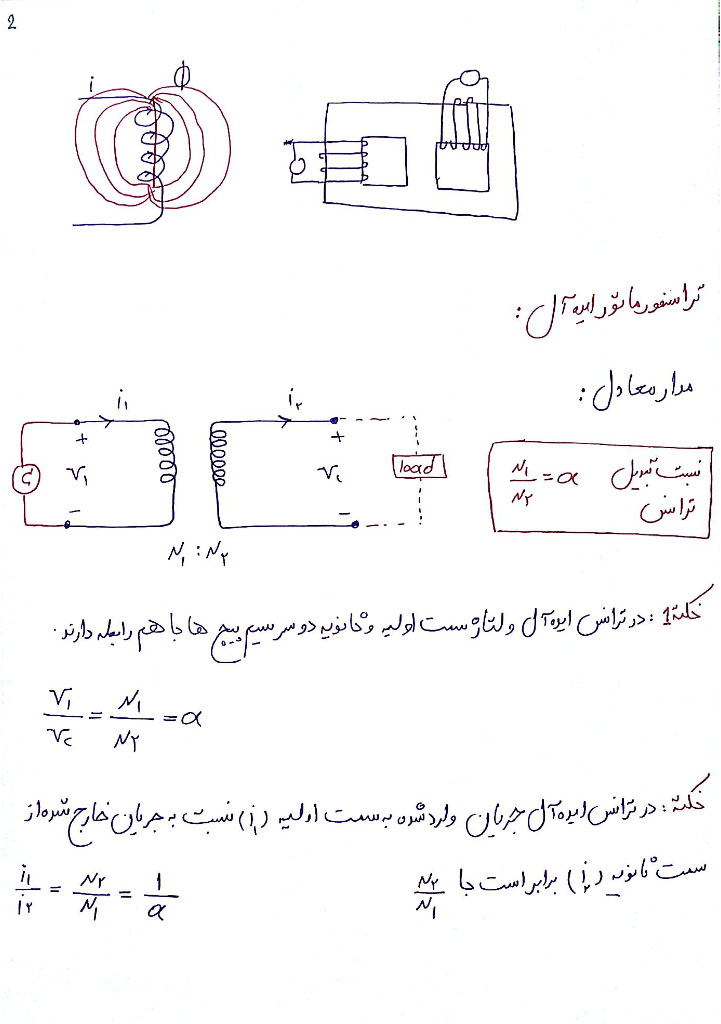 2
i
φ
ترانسفورماتور ایده آل :
مدار معادل :
i₁ i₂
+ +
V₁ V₂ load
نسبت تبدیل N₁/N₂ = α
ترانس
- -
N₁ : N₂
نکته 1 : در ترانس ایده آل ولتاژ سمت اولیه و ثانویه دو سر سیم پیچ ها با هم رابطه دارند .
V₁/V₂ = N₁/N₂ = α
نکته : در ترانس ایده آل جریان وارد شده به سمت اولیه (i₁) نسبت به جریان خارج شده از
سمت ثانویه (i₂) برابر است با N₂/N₁
i₁/i₂ = N₂/N₁ = 1/α